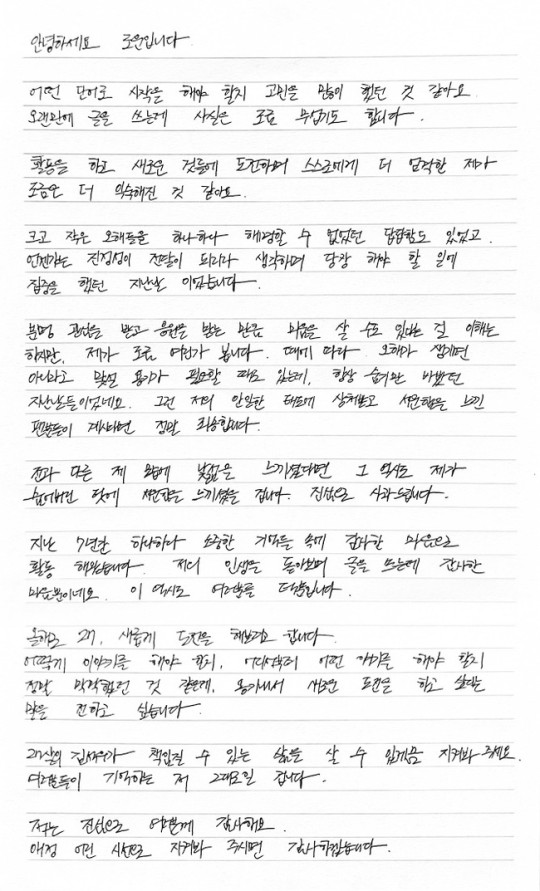 안녕하세요 로운입니다.
어떤 단어로 시작을 해야 할지 고민을 많이 했던 것 같아요
오랜만에 글을 쓰는데 사실은 조금 무섭기도 합니다.
활동을 하고 새로운 것들에 도전하며 스스로에게 더 엄격한 제가
조금은 더 익숙해진 것 같아요.
크고 작은 오해들을 하나하나 해명할 수 없었던 답답함도 있었고
언젠가는 진정성이 전달이 되리라 생각하며 당장 해야 할 일에
집중을 했던 지난날 이었습니다.
분명 관심을 받고 응원을 받는 만큼 미움을 살 수도 있다는 걸 이해는
하지만, 제가 조금 여린가 봅니다. 때에 따라 오해가 생기면
아니라고 맞설 용기가 필요할 때도 있는데, 항상 숨기만 바빴던
지난날들이었네요. 그런 저의 안일한 태도에 상처받고 서운함을 느낀
팬분들이 계시다면 정말 죄송합니다.
전과 다른 제 모습에 낯섦을 느끼셨다면 그 역시도 제가
숨어버린 탓에 서운함을 느끼셨을 겁니다. 진심으로 사과드립니다.
지난 7년간 하나하나 소중한 기억들 속에 감사한 마음으로
활동 해왔습니다. 저의 인생을 돌아보며 글을 쓰는데 감사한
마음뿐이네요. 이 역시도 여러분들 덕분입니다.
올해로 27, 새롭게 도전을 해보려고 합니다.
어떻게 이야기를 해야 할지, 어디서부터 어떤 얘기를 해야 할지
정말 막막했던 것 같은데, 용기내서 새로운 도전을 하고 싶다는
말을 전하고 싶습니다.
27살의 김석우가 책임질 수 있는 삶을 살 수 있게끔 지켜봐 주세요.
여러분들이 기억하는 저 그대로일 겁니다.
저는 진심으로 여러분께 감사해요.
애정 어린 시선으로 지켜봐 주시면 감사하겠습니다.